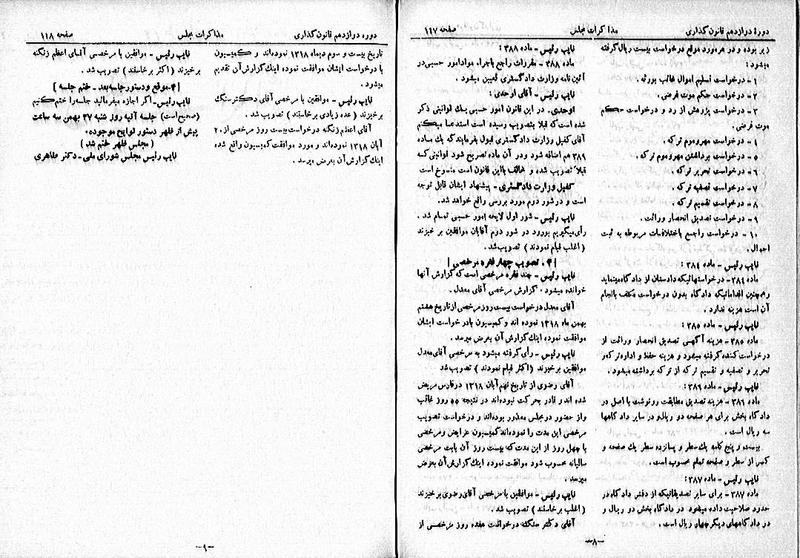 دورهٔ دوازدهم قانون‌گذاری
مذاکرات مجلس
صفحه ۱۱۷
زیر بوده و در هر مورد موقع درخواست بیست ریال گرفته
میشود:
۱ - درخواست تسلیم اموال غائب بورثه.
۲ - درخواست حکم موت فرضی.
۳ - درخواست پژوهش از رد و درخواست حکم
موت فرضی.
۴ - درخواست مهر و موم ترکه.
۵ - درخواست برداشتن مهر و موم ترکه.
۶ - درخواست تحریر ترکه.
۷ - درخواست تصفیه ترکه.
۸ - درخواست تقسیم ترکه.
۹ - درخواست تصدیق انحصار وراثت.
۱۰ - درخواست راجع باختلافات مربوطه به ثبت
احوال.
نایب رئیس - ماده ۳۸۴:
ماده ۳۸۴ - درخواستهائیکه دادستان از دادگاه مینماید
و همچنین اقداماتیکه دادگاه بدون درخواست مکلف بانجام
آن است هزینه ندارد.
نایب رئیس - ماده ۳۸۵:
ماده ۳۸۵ - هزینه آگهی تصدیق انحصار وراثت از
درخواست کننده گرفته میشود و هزینه حفظ و اداره ترکه و
تحریر و تصفیه و تقسیم ترکه از ترکه برداشته میشود.
نایب رئیس - ماده ۳۸۶:
ماده ۳۸۶ - هزینه تصدیق مطابقت رونوشت با اصل در
دادگاه بخش برای هر صفحه دو ریال و در سایر دادگاهها
سه ریال است.
بیست و پنج کلمه یک سطر و پانزده سطر یک صفحه و
کسر از سطر و صفحه تمام محسوب است.
نایب رئیس - ماده ۳۸۷:
ماده ۳۸۷ - برای سایر تصدیقاتیکه از دفتر دادگاه در
حدود صلاحیت داده میشود در دادگاه بخش دو ریال و
در دادگاههای دیگر چهار ریال است.
نایب رئیس - ماده ۳۸۸:
ماده ۳۸۸ - مقررات راجع باجراء مواد امور حسبی در
آئین نامه وزارت دادگستری تعیین میشود.
نایب رئیس - آقای اوحدی:
اوحدی. در این قانون امور حسبی یک قوانینی ذکر
شده است که قبلا بتصویب رسیده است استدعا میکنم
آقای کفیل وزارت دادگستری قبول بفرمایند که یک ماده
۳۸۹ هم اضافه شود و در آن ماده تصریح شود قوانینی که
قبلا تصویب شده و مخالف با این قانون است منسوخ است
کفیل وزارت دادگستری - پیشنهاد ایشان قابل توجه
است و در شور دوم مورد بررسی واقع خواهد شد.
نایب رئیس - شور اول لایحه امور حسبی تمام شد.
رأی میگیریم بورود در شور دوم آقایان موافقین برخیزند
(اغلب قیام نمودند) تصویب شد.
[۳ - تصویب چهار فقره مرخصی]
نایب رئیس - چند فقره مرخصی است که گزارش آنها
خوانده میشود. گزارش مرخصی آقای معدل.
آقای معدل درخواست بیست روز مرخصی از تاریخ هشتم
بهمن ماه ۱۳۱۸ نموده اند و کمیسیون با درخواست ایشان
موافقت نموده اینک گزارش آن بعرض میرسد.
نایب رئیس - رأی گرفته میشود به مرخصی آقای معدل
موافقین برخیزند (اکثر قیام نمودند) تصویب شد
آقای رضوی از تاریخ نهم آبان ۱۳۱۸ در فارس مریض
شده اند و قادر بحرکت نبوده‌اند در نتیجه ۵۵ روز غائب
و از حضور در مجلس معذور بوده‌اند و درخواست تصویب
مرخصی این مدت را نموده‌اند کمیسیون عرایض و مرخصی
با چهل روز از این مدت که بیست روز آن بابت مرخصی
سالیانه محسوب شود موافقت نموده اینک گزارش آن بعرض
میرسد.
نایب رئیس - موافقین با مرخصی آقای رضوی برخیزند
(اغلب برخاستند) تصویب شد.
آقای دکتر سنگ درخواست هفده روز مرخصی از
-۸-
دوره دوازدهم قانون گذاری
مذاکرات مجلس
صفحه ۱۱۸
تاریخ بیست و سوم دیماه ۱۳۱۸ نموده‌اند و کمیسیون
با درخواست ایشان موافقت نموده اینک گزارش آن تقدیم
میشود.
نایب رئیس - موافقین با مرخصی آقای دکتر سنگ
برخیزند (عده زیادی برخاستند) تصویب شد.
آقای اعظم زنگنه درخواست بیست روز مرخصی از ۲۰
آبان ۱۳۱۸ نموده‌اند و مورد موافقت کمیسیون واقع شده
اینک گزارش آن بعرض میرسد.
نایب رئیس - موافقین با مرخصی آقای اعظم زنگنه
برخیزند (اکثر برخاستند) تصویب شد.
[۴ - موقع و دستور جلسه بعد - ختم جلسه]
نایب رئیس - اگر اجازه میفرمائید جلسه را ختم کنیم
(صحیح است) جلسه آتیه روز شنبه ۲۷ بهمن سه ساعت
پیش از ظهر دستور لوایح موجوده.
(مجلس ظهر ختم شد)
نایب رئیس مجلس شورای ملی - دکتر طاهری
-۹-